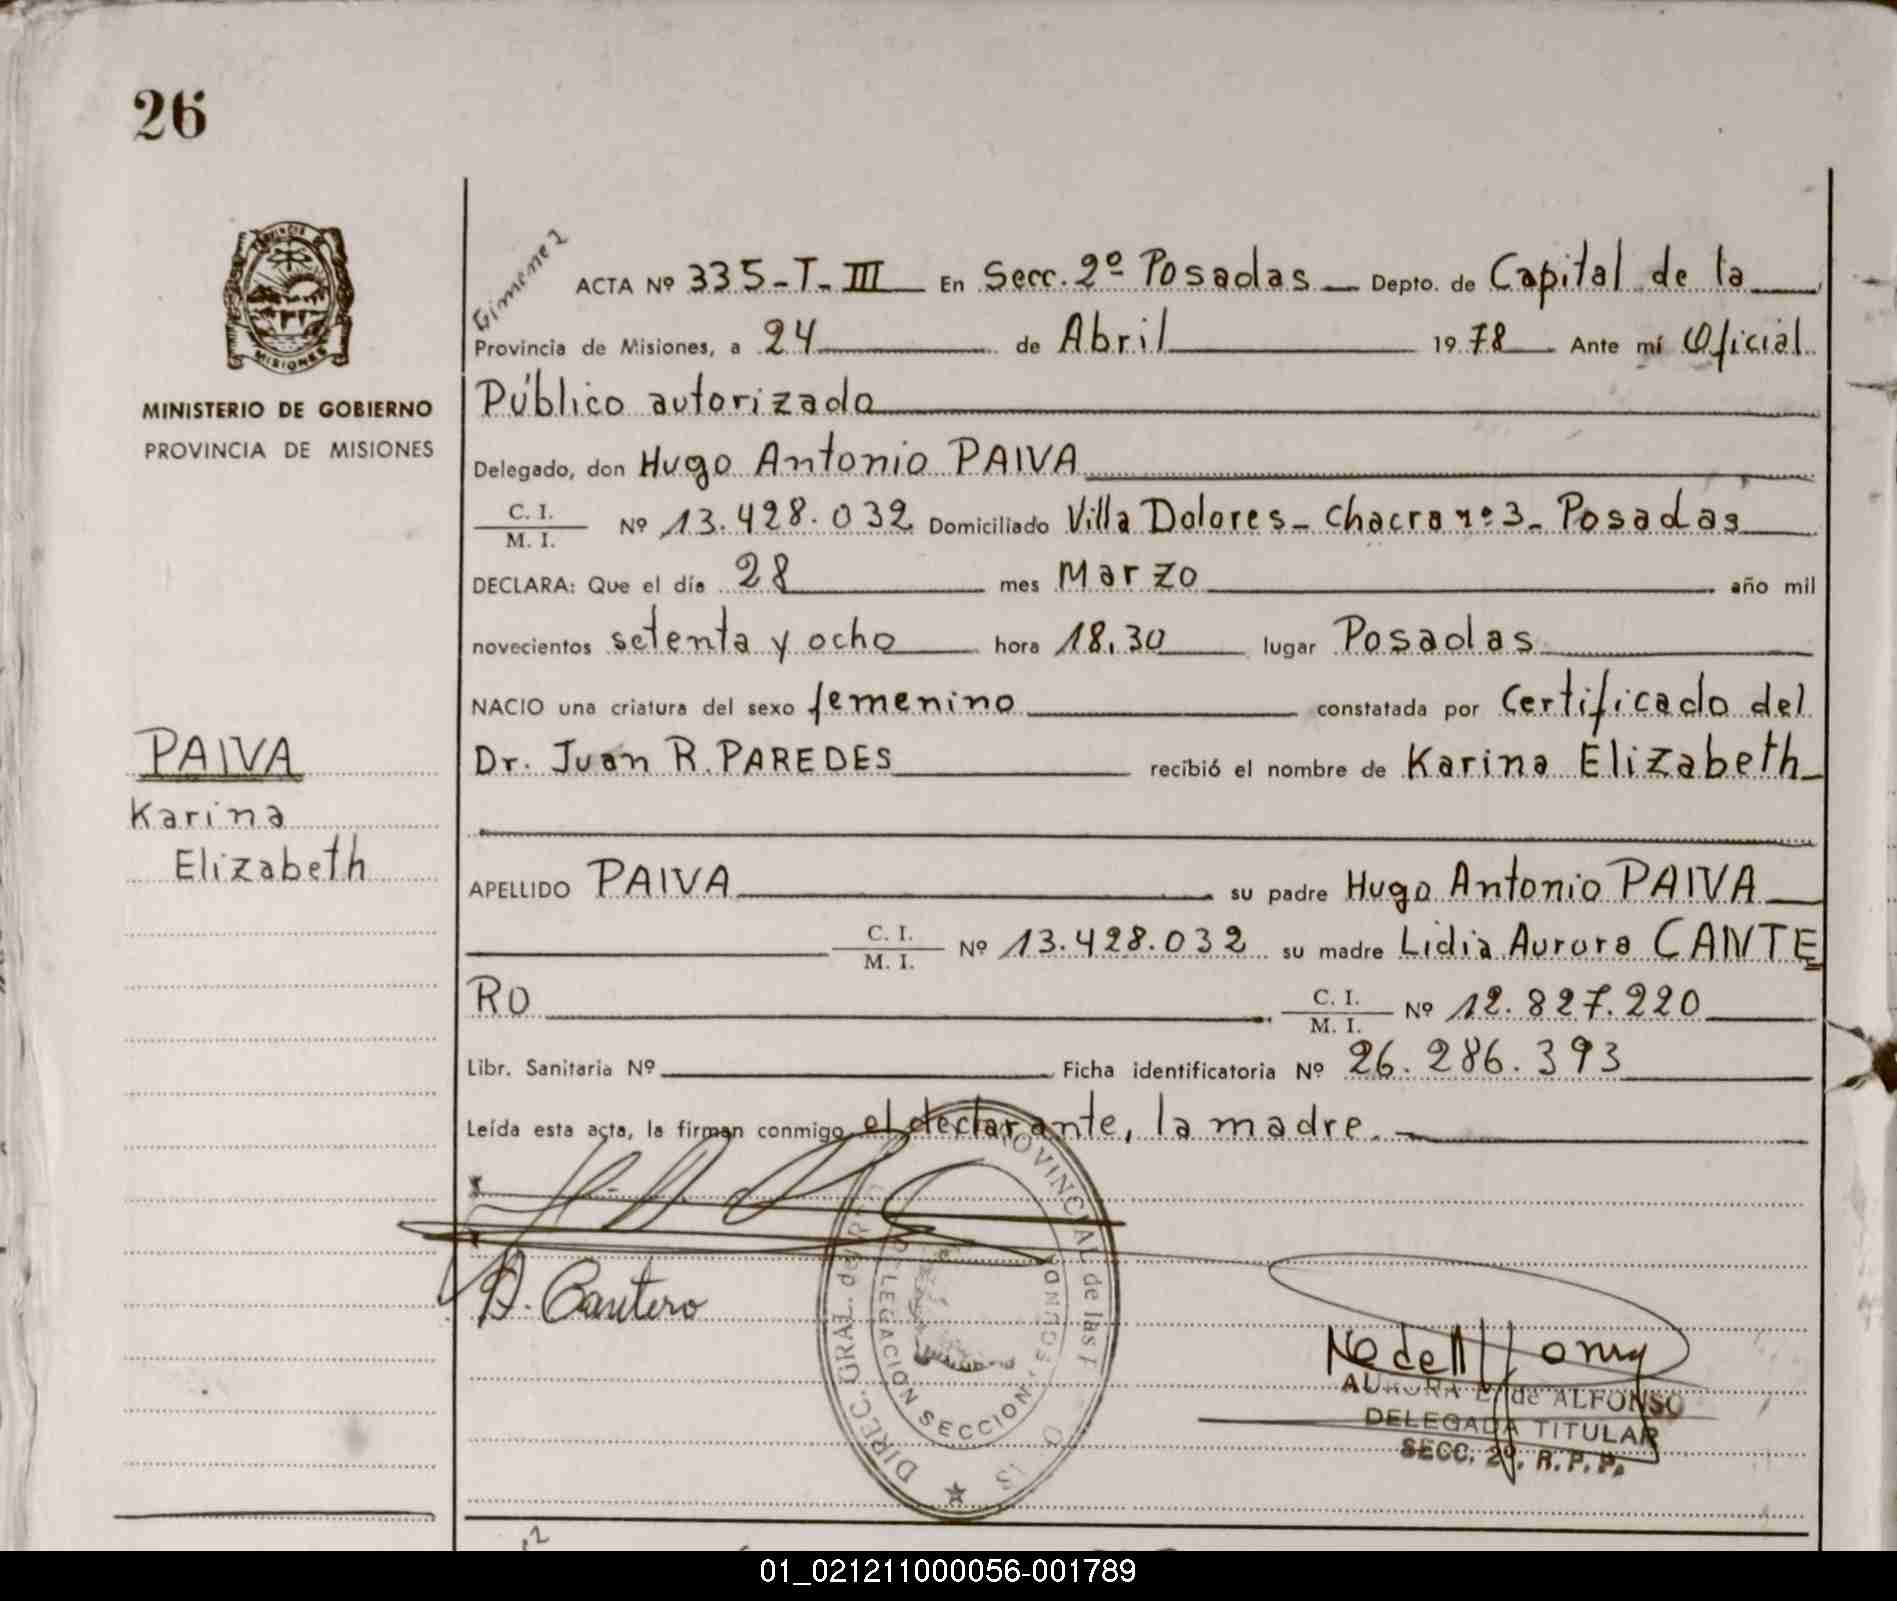 26
Gimenez
ACTA Nº 335-T-III En Secc. 2º Posadas Depto. de Capital de la
Provincia de Misiones, a 24 de Abril 1978 Ante mí Oficial
Público autorizado
MINISTERIO DE GOBIERNO
PROVINCIA DE MISIONES
Delegado, don Hugo Antonio PAIVA
C. I.
M. I. Nº 13.428.032 Domiciliado Villa Dolores - Chacra nº 3 - Posadas
DECLARA: Que el día 28 mes Marzo año mil
novecientos setenta y ocho hora 18.30 lugar Posadas
NACIO una criatura del sexo femenino constatada por Certificado del
Dr. Juan R. PAREDES recibió el nombre de Karina Elizabeth
PAIVA
Karina
Elizabeth
APELLIDO PAIVA su padre Hugo Antonio PAIVA
C. I.
M. I. Nº 13.428.032 su madre Lidia Aurora CANTE
RO C. I.
M. I. Nº 12.827.220
Libr. Sanitaria Nº Ficha identificatoria Nº 26.286.393
Leída esta acta, la firman conmigo el declarante, la madre.
A. Cantero
DIREC. GRAL. del PROVINCIAL de las
DELEGACION SECCION SEGUNDA
AURORA de ALFONSO
DELEGADA TITULAR
SECC. 2º. R.P.P.
01_021211000056-001789